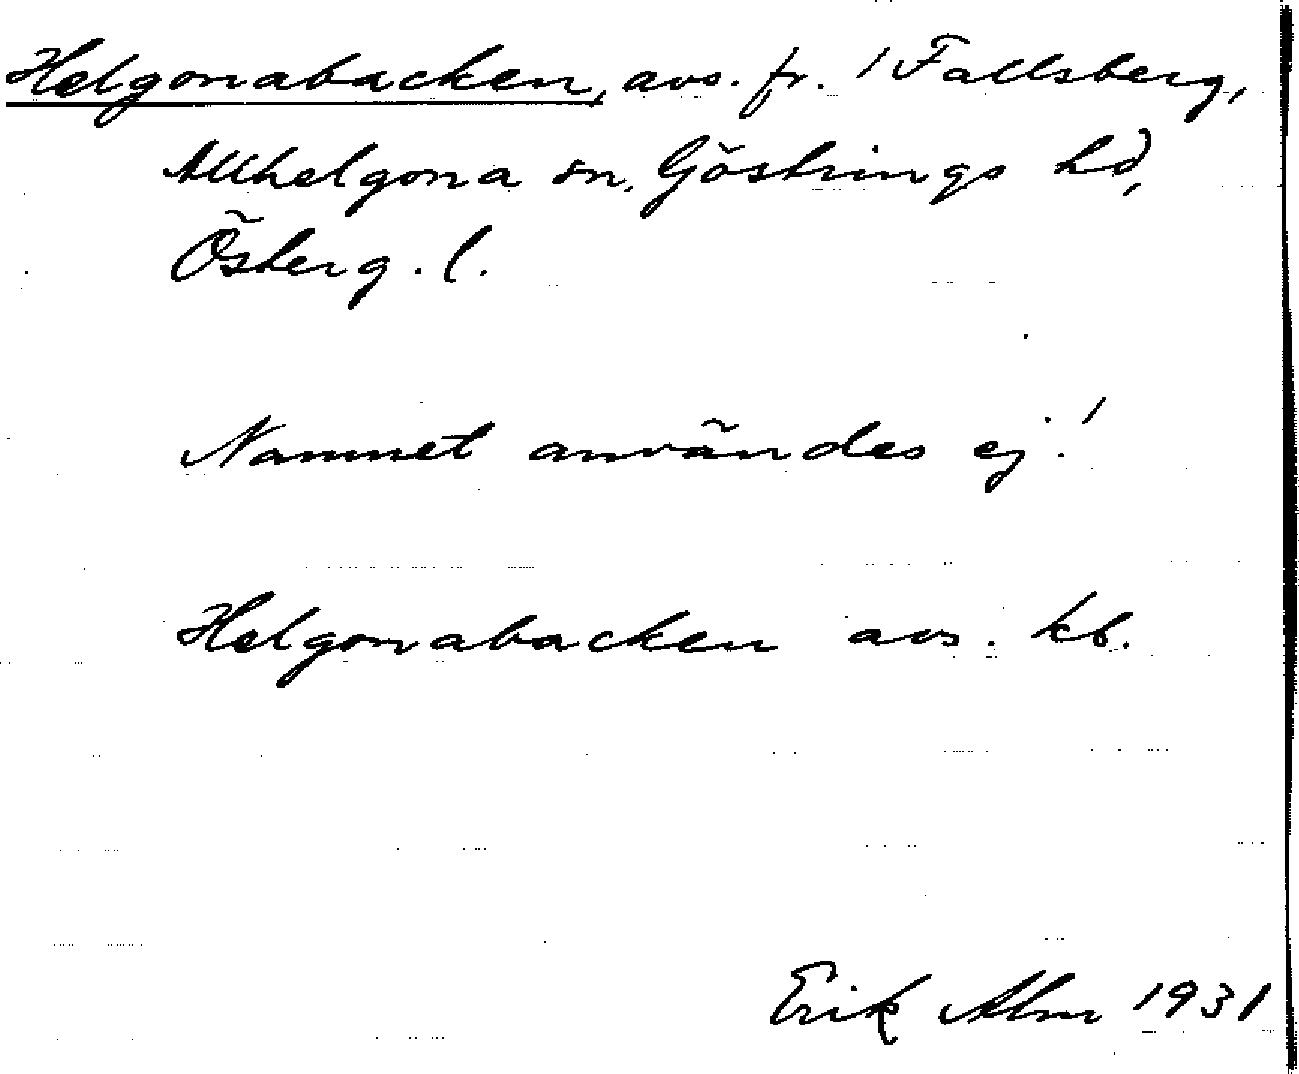 Helgonabacken, avs. fr. 1 Fallsberg,
Allhelgona sn, Göstrings hd,
Österg. l.
Namnet användes ej!
Helgonabacken avs. kb.
Erik Alm 1931